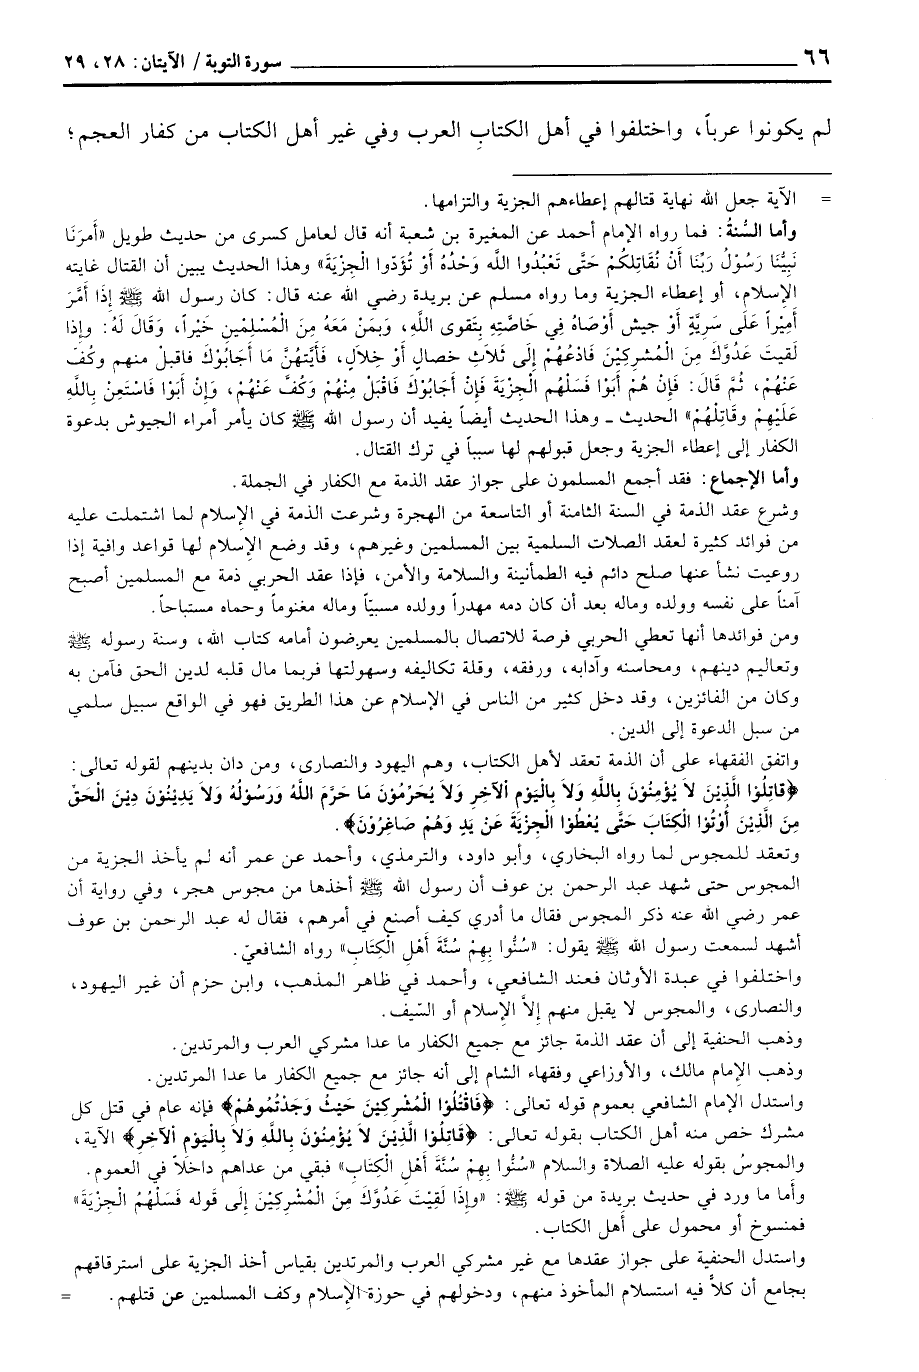 ٦٦ ــــــــــــــــــــــــــــــــــــــــ سورة التوبة / الآيتان: ٢٨، ٢٩
لم يكونوا عرباً، واختلفوا في أهل الكتابِ العرب وفي غير أهل الكتاب من كفار العجم؛
= الآية جعل الله نهاية قتالهم إعطاءهم الجزية والتزامها.
وأما السُّنةُ: فما رواه الإمام أحمد عن المغيرة بن شعبة أنه قال لعامل كسرى من حديث طويل «أَمرَنَا
نَبِيُّنَا رَسُوْلُ رَبِّنَا أَن نُقَاتِلكُمْ حَتَّى تَعْبُدُوا اللَّه وَحْدُهُ أَوْ تُؤَدّوا الْجِزْيَةَ» وهذا الحديث يبين أن القتال غايته
الإسلام، أو إعطاء الجزية وما رواه مسلم عن بريدة رضي الله عنه قال: كان رسول الله ﷺ إِذَا أَمَّرَ
أَمِيْراً عَلَى سَرِيَّةٍ أَوْ جيش أَوْصَاهُ فِي خَاصَّتِهِ بِتَقوى اللَّهِ، وَبِمَنْ مَعَهُ مِنَ الْمُسْلِمِيْن خَيْراً، وَقَالَ لَهُ: وإِذا
لَقيتَ عَدُوَّكَ مِنَ الْمُشرِكيْنَ فَادْعُهُمْ إِلى ثَلاثِ خصالٍ أَوْ خِلالٍ، فَأَيَّتهُنَّ مَا أَجَابُوْكَ فاقبلْ منهم وكُفَّ
عَنْهُمْ، ثُمَّ قَالَ: فَإِن هُمْ أَبَوْا فَسَلْهُم الْجِزْيَةَ فَإِنْ أَجَابُوْكَ فَاقْبَلْ مِنْهُمْ وَكُفَّ عَنْهُمْ، وَإِنْ أَبَوْا فَاسْتَعِنْ بِاللَّهِ
عَلَيْهِمْ وَقَاتِلْهُمْ» الحديث ـ وهذا الحديث أيضاً يفيد أن رسول الله ﷺ كان يأمر أمراء الجيوش بدعوة
الكفار إلى إعطاء الجزية وجعل قبولهم لها سبباً في ترك القتال.
وأما الإجماع: فقد أجمع المسلمون على جواز عقد الذمة مع الكفار في الجملة.
وشرع عقد الذمة في السنة الثامنة أو التاسعة من الهجرة وشرعت الذمة في الإسلام لما اشتملت عليه
من فوائد كثيرة لعقد الصلات السلمية بين المسلمين وغيرهم، وقد وضع الإسلام لها قواعد وافية إذا
روعيت نشأ عنها صلح دائم فيه الطمأنينة والسلامة والأمن، فإذا عقد الحربي ذمة مع المسلمين أصبح
آمناً على نفسه وولده وماله بعد أن كان دمه مهدراً وولده مسبيّاً وماله مغنوماً وحماه مستباحاً.
ومن فوائدها أنها تعطي الحربي فرصة للاتصال بالمسلمين يعرضون أمامه كتاب الله، وسنة رسوله ﷺ
وتعاليم دينهم، ومحاسنه وآدابه، ورفقه، وقلة تكاليفه وسهولتها فربما مال قلبه لدين الحق فآمن به
وكان من الفائزين، وقد دخل كثير من الناس في الإسلام عن هذا الطريق فهو في الواقع سبيل سلمي
من سبل الدعوة إلى الدين.
واتفق الفقهاء على أن الذمة تعقد لأهل الكتاب، وهم اليهود والنصارى، ومن دان بدينهم لقوله تعالى:
﴿قَاتِلُوْا الَّذِيْنَ لَا يُؤْمِنُوْنَ بِاللَّهِ وَلَا بِالْيَوْمِ الْآخِرِ وَلَا يُحَرِّمُوْنَ مَا حَرَّمَ اللَّهُ وَرَسُوْلُهُ وَلَا يَدِيْنُوْنَ دِيْنَ الْحَقِّ
مِنَ الَّذِيْنَ أُوْتُوْا الْكِتَابَ حَتَّى يُعْطُوْا الْجِزْيَةَ عَنْ يَدٍ وَهُمْ صَاغِرُوْنَ﴾.
وتعقد للمجوس لما رواه البخاري، وأبو داود، والترمذي، وأحمد عن عمر أنه لم يأخذ الجزية من
المجوس حتى شهد عبد الرحمن بن عوف أن رسول الله ﷺ أخذها من مجوس هجر، وفي رواية أن
عمر رضي الله عنه ذكر المجوس فقال ما أدري كيف أصنع في أمرهم، فقال له عبد الرحمن بن عوف
أشهد لسمعت رسول الله ﷺ يقول: «سُنُّوا بِهِمْ سُنَّةَ أَهْلِ الْكِتَابِ» رواه الشافعيّ.
واختلفوا في عبدة الأوثان فعند الشافعي، وأحمد في ظاهر المذهب، وابن حزم أن غير اليهود،
والنصارى، والمجوس لا يقبل منهم إلاَّ الإسلام أو السّيف.
وذهب الحنفية إلى أن عقد الذمة جائز مع جميع الكفار ما عدا مشركي العرب والمرتدين.
وذهب الإمام مالك، والأوزاعي وفقهاء الشام إلى أنه جائز مع جميع الكفار ما عدا المرتدين.
واستدل الإمام الشافعي بعموم قوله تعالى: ﴿فَاقْتُلُوْا الْمُشْرِكِيْنَ حَيْثُ وَجَدْتُمُوهُمْ﴾ فإنه عام في قتل كل
مشرك خص منه أهل الكتاب بقوله تعالى: ﴿قَاتِلُوْا الَّذِيْنَ لَا يُؤْمِنُوْنَ بِاللَّهِ وَلَا بِالْيَوْمِ الْآخِرِ﴾ الآية،
والمجوسُ بقوله عليه الصلاة والسلام «سُنُّوا بِهِمْ سُنَّةَ أَهْلِ الْكِتَابِ» فبقي من عداهم داخلاً في العموم.
وأما ما ورد في حديث بريدة من قوله ﷺ: «وإِذَا لَقِيْتَ عَدُوَّكَ مِنَ الْمُشْرِكِيْنَ إِلَى قَوله فَسَلْهُمُ الْجِزْيَةَ»
فمنسوخ أو محمول على أهل الكتاب.
واستدل الحنفية على جواز عقدها مع غير مشركي العرب والمرتدين بقياس أخذ الجزية على استرقاقهم
بجامع أن كلاًّ فيه استسلام المأخوذ منهم، ودخولهم في حوزة الإسلام وكف المسلمين عن قتلهم. =